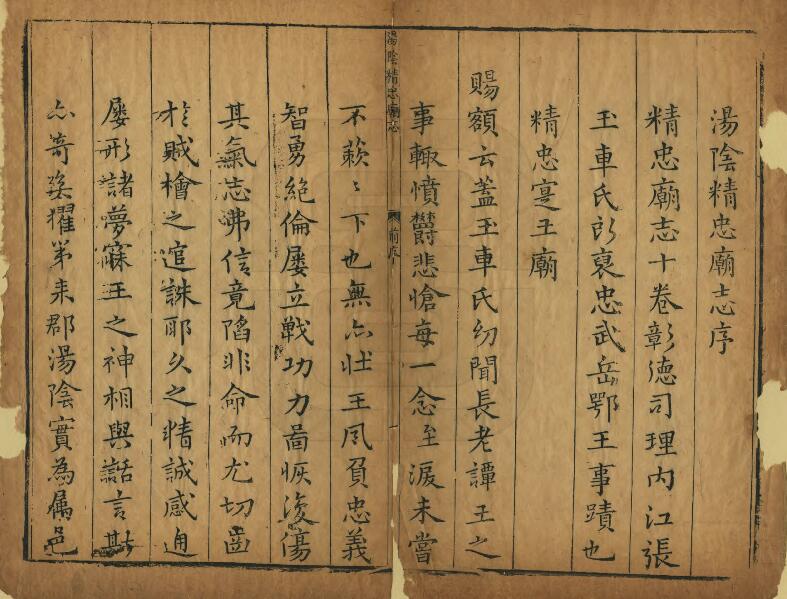 湯陰精忠廟志序
精忠廟志十卷彰德司理內江張
玉車氏所裒忠武岳鄂王事蹟也
精忠寔王廟
賜額云蓋玉車氏幼聞長老譚王之
事輒憤欝悲愴每一念至淚未嘗
湯陰精忠廟志
前序
不蔌〻下也無亦壯王夙負忠義
智勇絕倫屢立戰功力啚恢復傷
其氣志沸信竟陷非命而尤切齒
於賊檜之逭誅耶久之精誠感通
屡形諸夢寐王之神相與話言斯
亦奇矣擢第来郡湯陰實為属邑